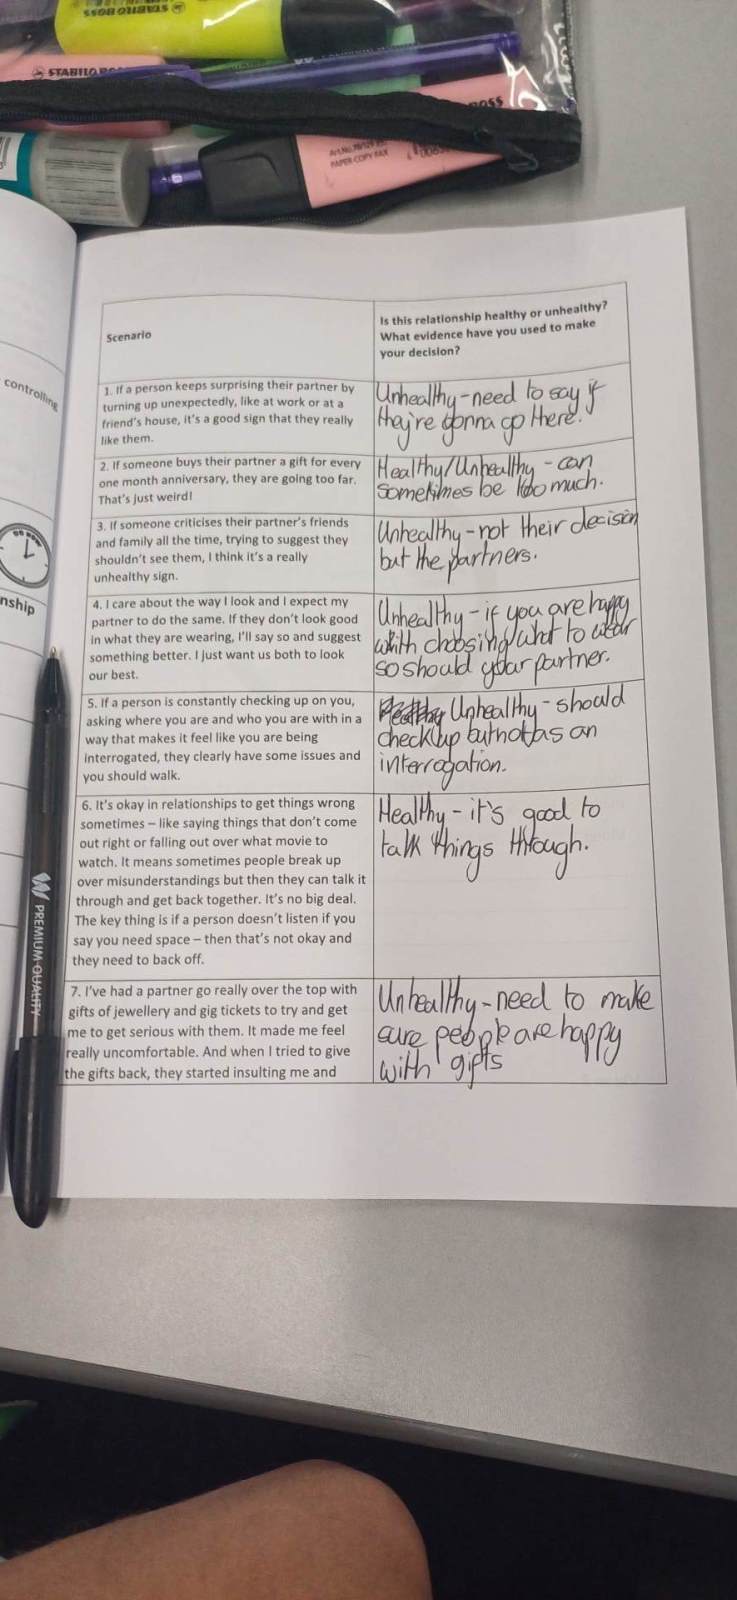 STABILO BOSS
STABILO
BOSS
PAPER COPY FAX
controlling
nship
PREMIUM QUALITY
Scenario
Is this relationship healthy or unhealthy?
What evidence have you used to make
your decision?
1. If a person keeps surprising their partner by
turning up unexpectedly, like at work or at a
friend's house, it's a good sign that they really
like them.
Unhealthy - need to say if
they're gonna go there.
2. If someone buys their partner a gift for every
one month anniversary, they are going too far.
That's just weird!
Healthy/Unhealthy - can
sometimes be too much.
3. If someone criticises their partner's friends
and family all the time, trying to suggest they
shouldn't see them, I think it's a really
unhealthy sign.
Unhealthy - not their decision
but the partners.
4. I care about the way I look and I expect my
partner to do the same. If they don't look good
in what they are wearing, I'll say so and suggest
something better. I just want us both to look
our best.
Unhealthy - if you are happy
with choosing what to wear
so should your partner.
5. If a person is constantly checking up on you,
asking where you are and who you are with in a
way that makes it feel like you are being
interrogated, they clearly have some issues and
you should walk.
Unhealthy - should
check up but not as an
interrogation.
6. It's okay in relationships to get things wrong
sometimes – like saying things that don't come
out right or falling out over what movie to
watch. It means sometimes people break up
over misunderstandings but then they can talk it
through and get back together. It's no big deal.
The key thing is if a person doesn't listen if you
say you need space – then that's not okay and
they need to back off.
Healthy - it's good to
talk things through.
7. I've had a partner go really over the top with
gifts of jewellery and gig tickets to try and get
me to get serious with them. It made me feel
really uncomfortable. And when I tried to give
the gifts back, they started insulting me and
Unhealthy - need to make
sure people are happy
with gifts